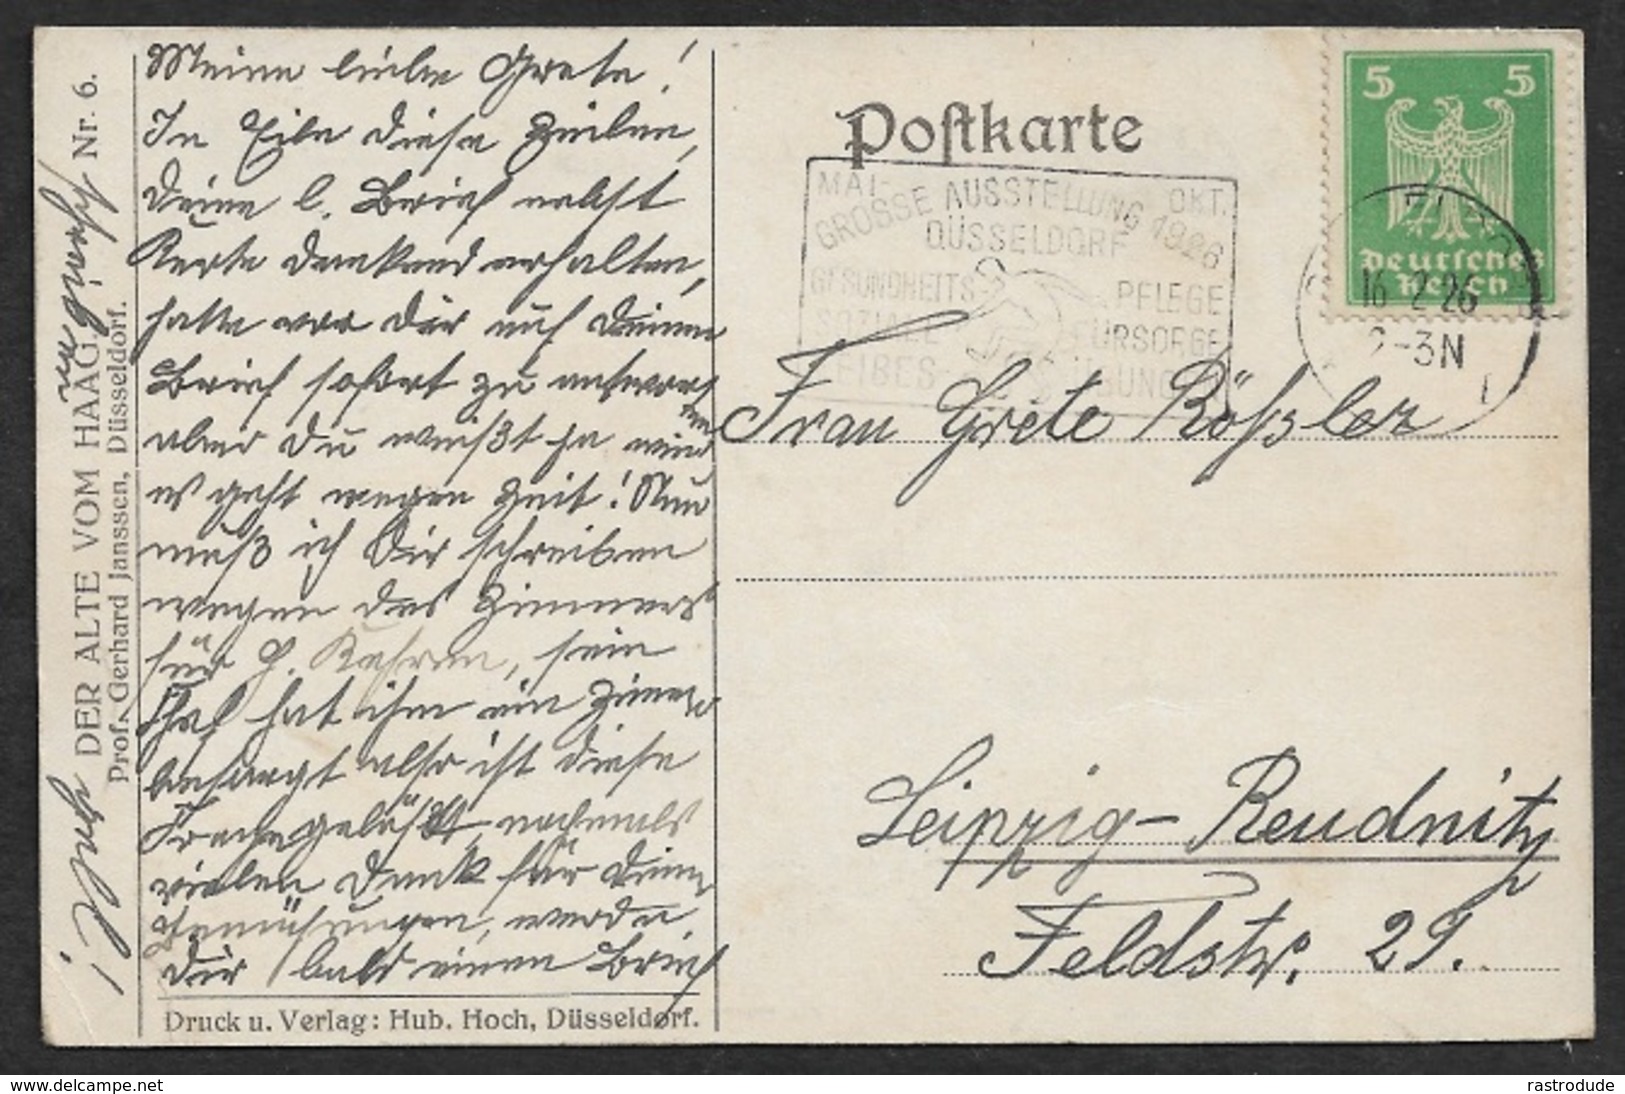 Meine liebe Grete!
In Eile diese Zeilen,
Deine l. Brief nebst
Karte dankend erhalten,
hatte vor Dir auf Deinen
Brief sofort zu antwor-
ten
aber Du weißt ja wie
es geht wegen Zeit! Nun
muß ich Dir schreiben
wegen des Zimmers
für H. sein
Chef hat ihm ein Zimmer
besorgt also ist diese
Frage gelöst, nochmals
vielen Dank für Deine
Bemühungen, werde
Dir bald einen Brief
DER ALTE VOM HAAG. Nr. 6.
Prof. Gerhard Janssen, Düsseldorf.
Druck u. Verlag: Hub. Hoch, Düsseldorf.
Postkarte
MAI- OKT.
GROSSE AUSSTELLUNG 1926
DÜSSELDORF
GESUNDHEITS- PFLEGE
SOZIALE FÜRSORGE
LEIBES- ÜBUNGEN
5 5
Deutsches
Reich
16.2.26
2-3N
Frau Grete Rößler
Leipzig-Reudnitz
Feldstr. 29.
delcampe.net
rastrodude